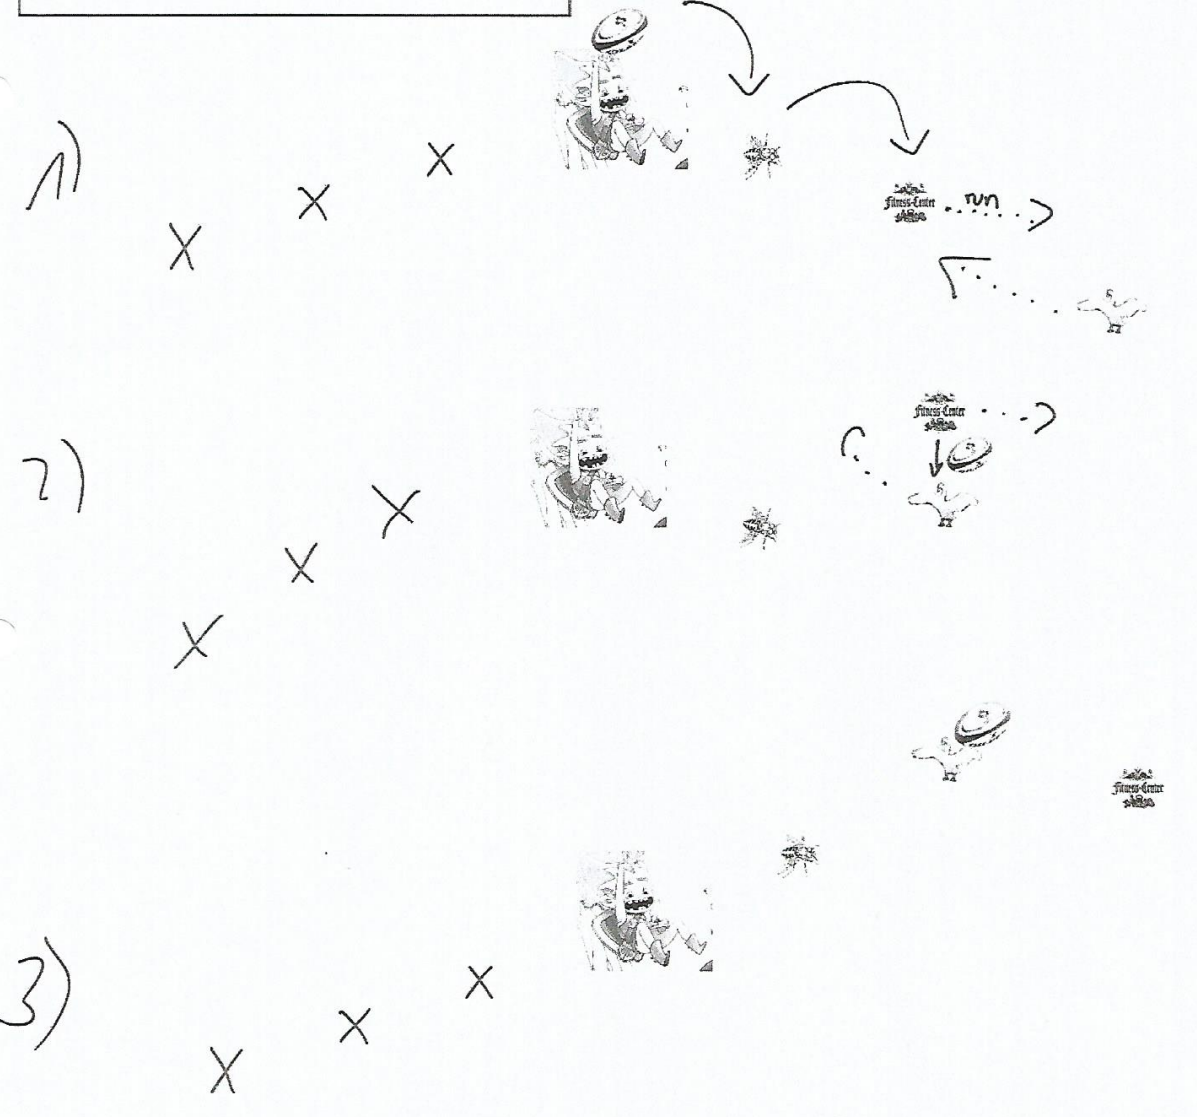 1) X X X
Fitness-Center run
2) X X X
Fitness-Center
3) X X X
Fitness-Center